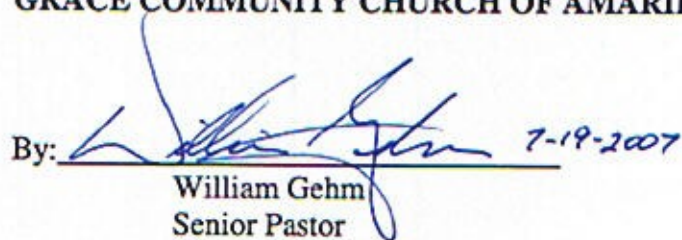 GRACE COMMUNITY CHURCH OF
By: William Gehm 7-19-2007
William Gehm
Senior Pastor